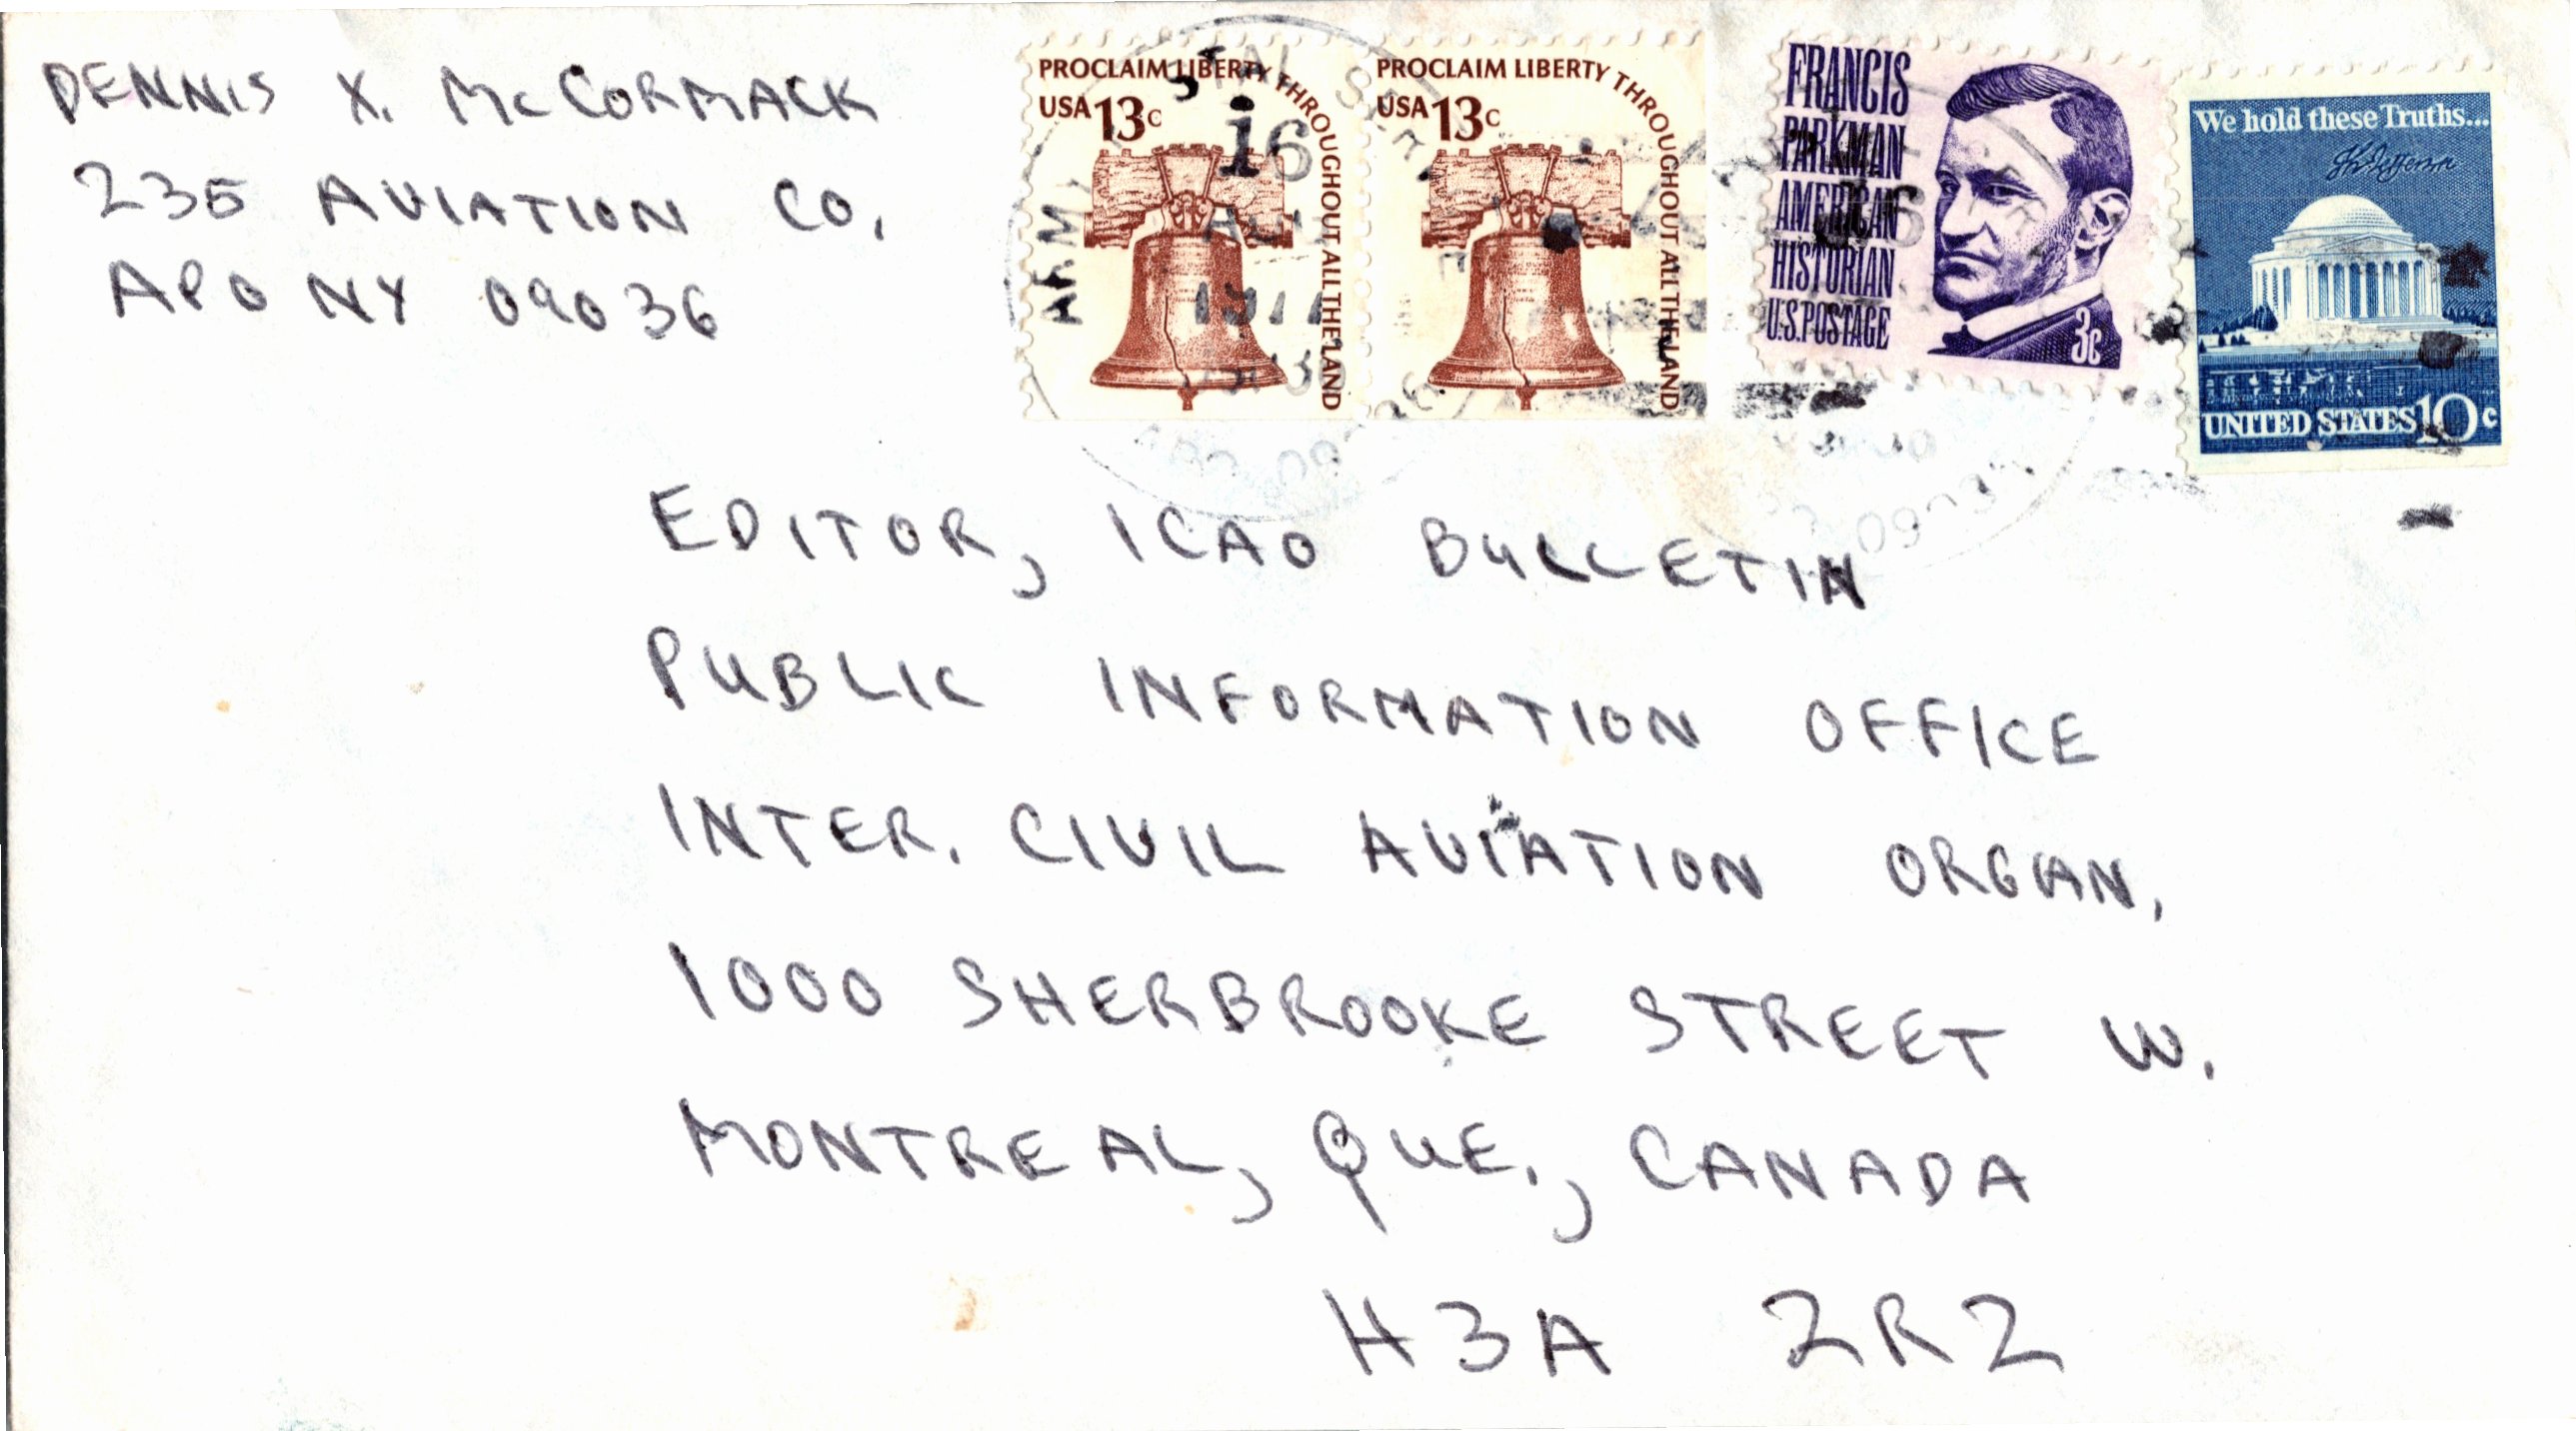 DENNIS X. McCORMACK
235 AVIATION CO.
APO NY 09036
PROCLAIM LIBERTY THROUGHOUT ALL THE LAND
USA 13c
PROCLAIM LIBERTY THROUGHOUT ALL THE LAND
USA 13c
FRANCIS
PARKMAN
AMERICAN
HISTORIAN
U.S. POSTAGE
3c
We hold these Truths...
Th Jefferson
UNITED STATES 10c
ARMY
16
EDITOR, ICAO BULLETIN
PUBLIC INFORMATION OFFICE
INTER. CIVIL AVIATION ORGAN.
1000 SHERBROOKE STREET W.
MONTREAL, QUE., CANADA
H3A 2R2